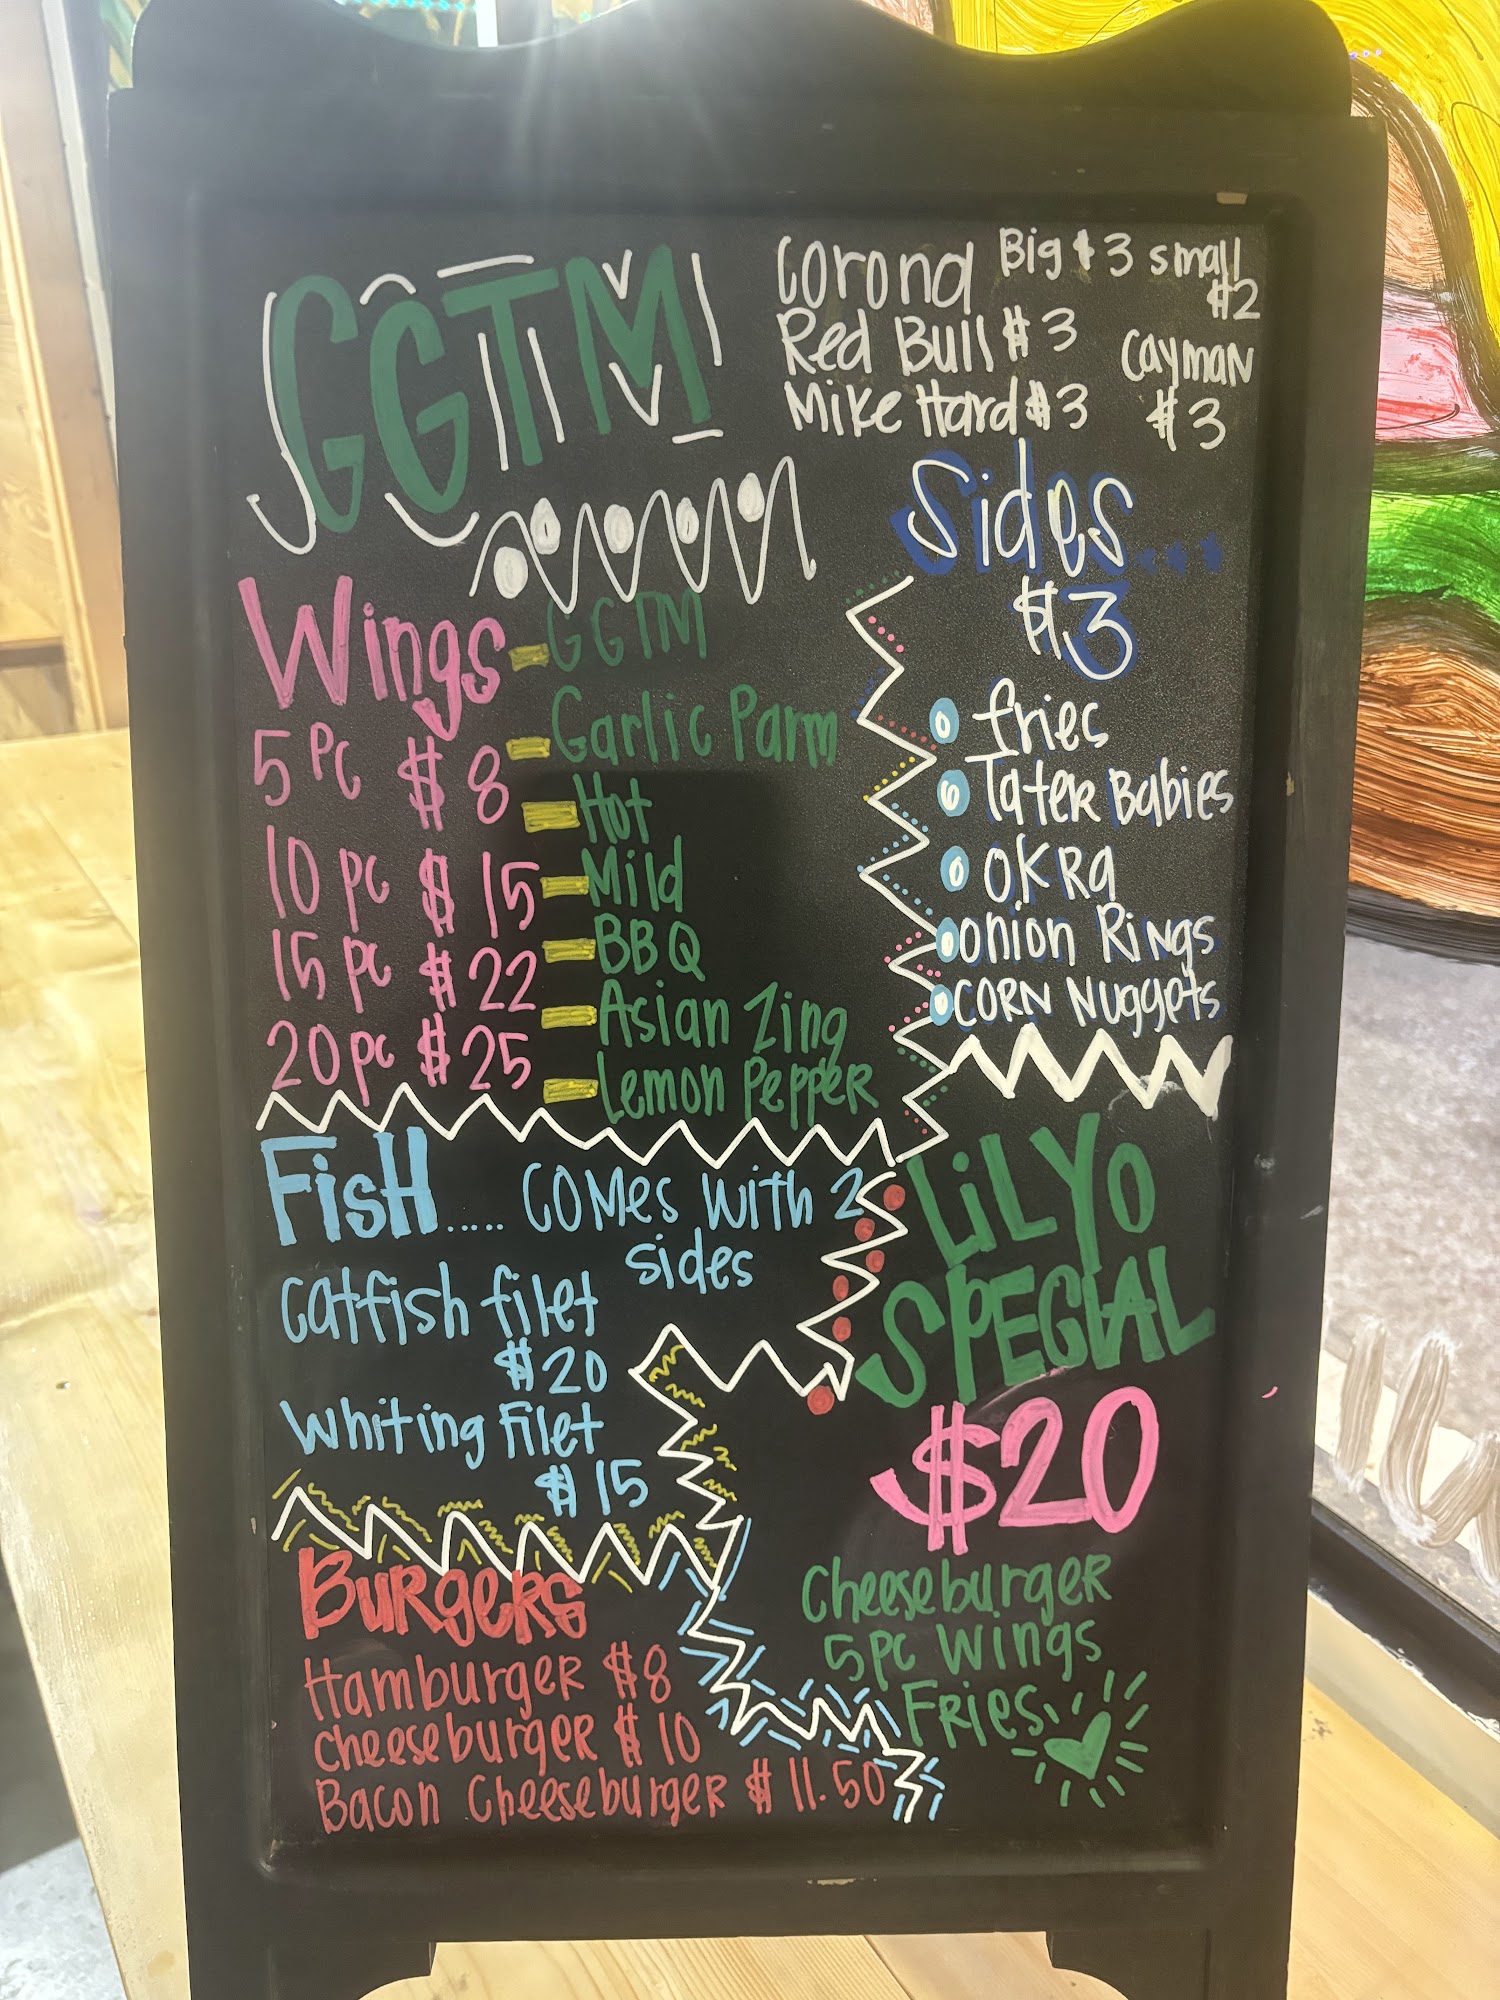 GGTM
Corona Big $3 small
$2
Red Bull $3
Cayman
Mike Hard $3
$3
Wings
5 pc $8
10 pc $15
15 pc $22
20 pc $25
GGTM
Garlic Parm
Hot
Mild
BBQ
Asian Zing
Lemon Pepper
Sides....
$3
fries
Tater Babies
OKRa
Onion Rings
CORN Nuggets
Fish..... COMes with 2
sides
Catfish filet
$20
Whiting Filet
$15
Burgers
Hamburger $8
Cheeseburger $10
Bacon Cheeseburger $11.50
LiL YO
SPECIAL
$20
Cheeseburger
5pc Wings
Fries